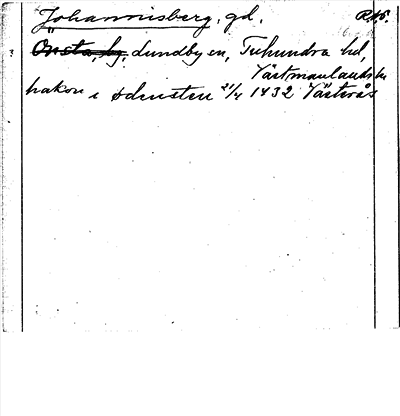 Johannisberg, gd. RA6.
Onsta, by, Lundby sn, Tuhundra hd,
Västmanlands län
hakon i odensten 21/4 1432 Västerås